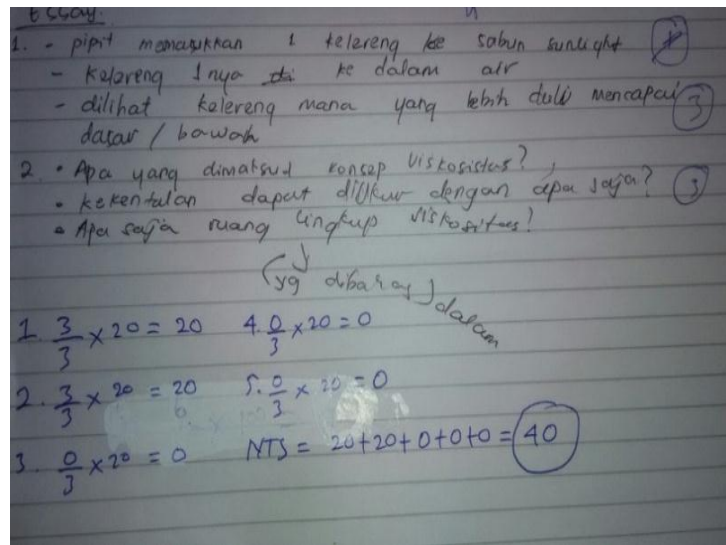 Essay.
1. - pipit memasukkan 1 kelereng ke sabun sunlight
- Kelereng 1nya ke dalam air
- dilihat kelereng mana yang lebih dulu mencapai 3
dasar / bawah
2. • Apa yang dimaksud konsep Viskositas?
• kekentalan dapat diukur dengan apa saja? 3
• Apa saja ruang lingkup viskositas?
(yg dibahas) dalam
1. 3/3 × 20 = 20 4. 0/3 × 20 = 0
2. 3/3 × 20 = 20 5. 0/3 × 20 = 0
3. 0/3 × 20 = 0 NTS = 20+20+0+0+0 = 40